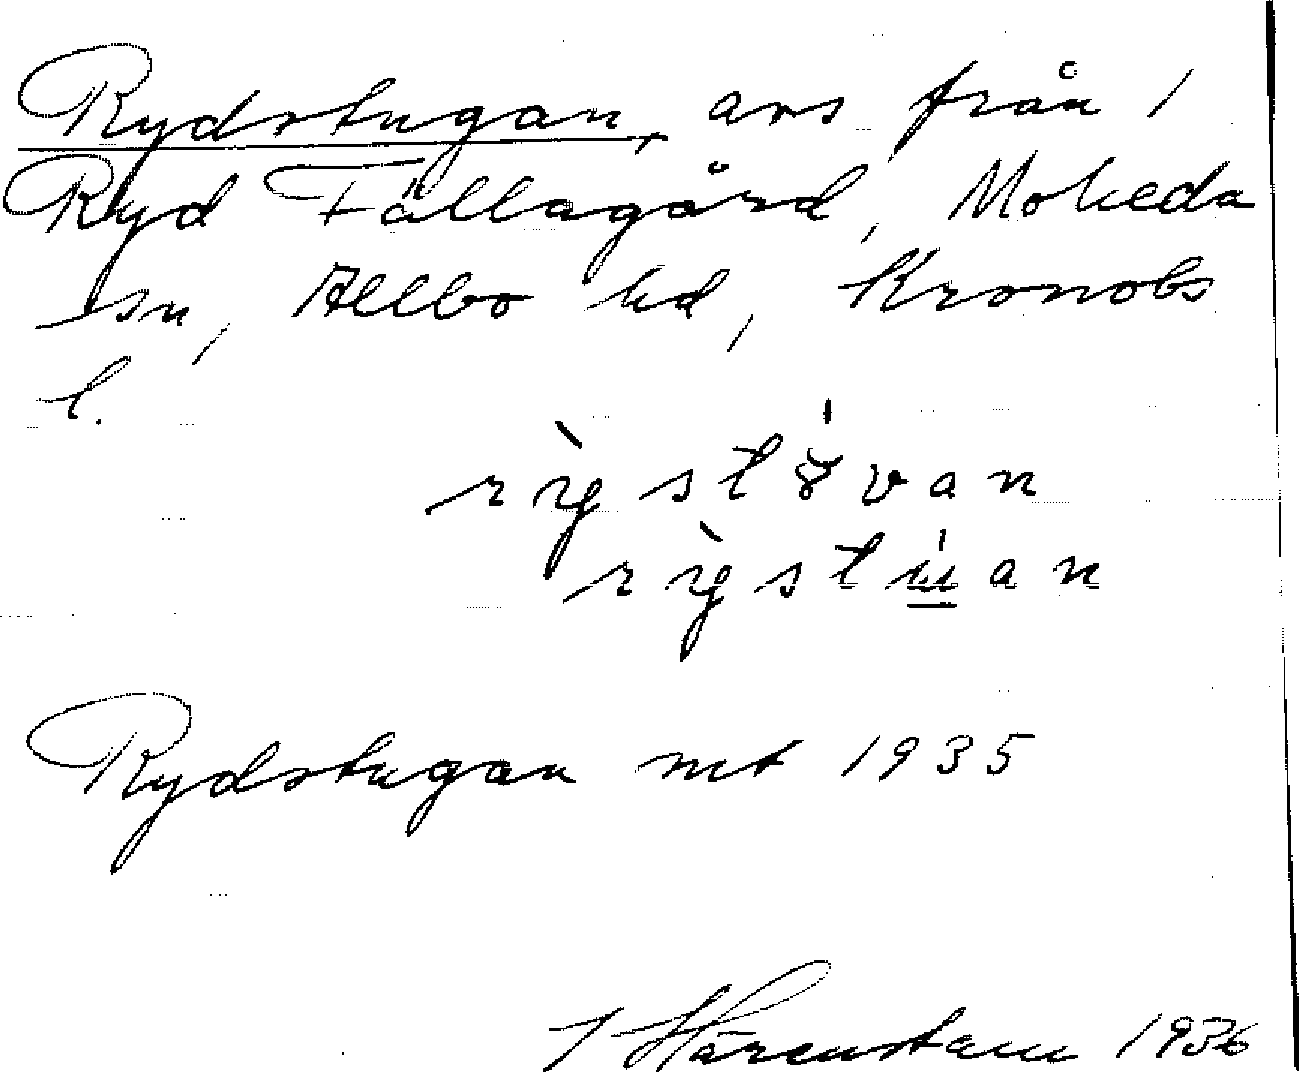 Rydstugan, avs från 1
Ryd Fällagård, Moheda
sn, Allbo hd, Kronobs
l.
Rydstugan mt 1935
J Härenstam 1936